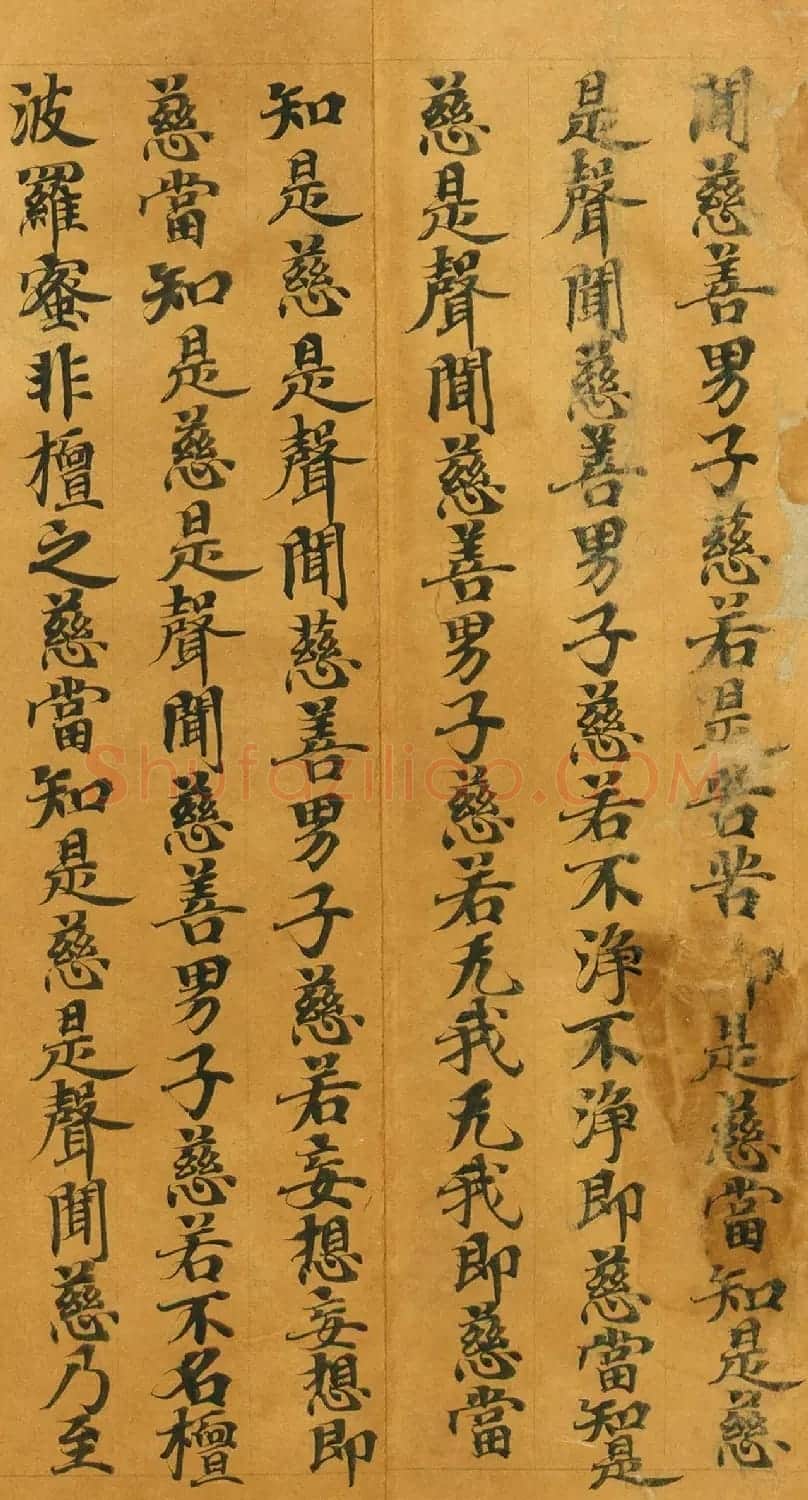 聞慈善男子慈若是苦苦即是慈當知是慈
是聲聞慈善男子慈若不淨不淨即慈當知是
慈是聲聞慈善男子慈若无我无我即慈當
知是慈是聲聞慈善男子慈若妄想妄想即
慈當知是慈是聲聞慈善男子慈若不名檀
波羅蜜非檀之慈當知是慈是聲聞慈乃至
Shufaziliao.COM